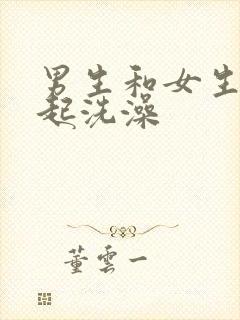 男生和女生
起洗澡
董云一